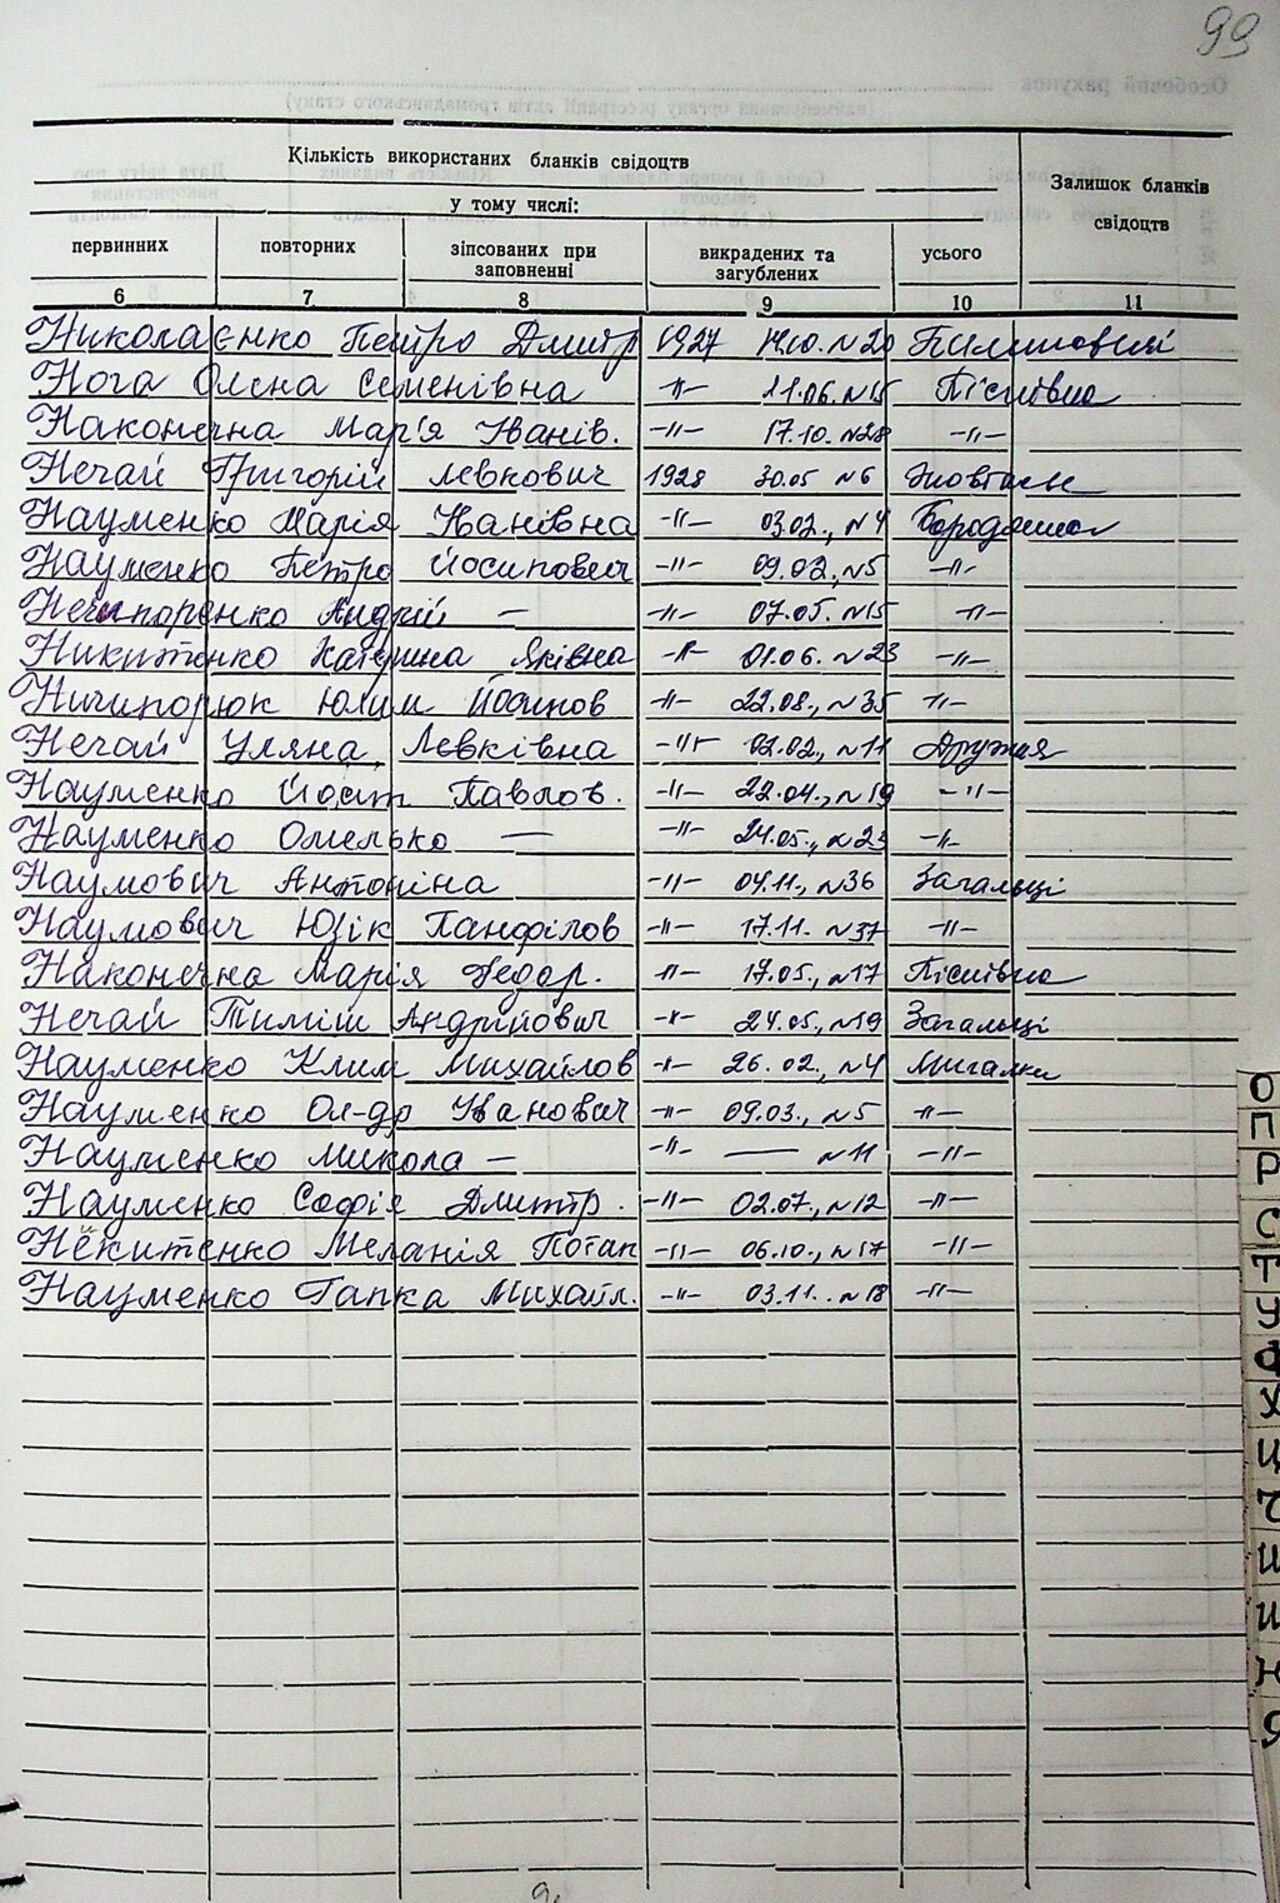 99
Кількість використаних бланків свідоцтв
Залишок бланків свідоцтв
у тому числі:
первинних повторних зіпсованих при заповненні викрадених та загублених усього
6 7 8 9 10 11
Николаєнко Петро Дмитр 1927 14.10. №20
Нога Олена Семенівна -"- 21.06. №15 Пісківка
Наконечна Мар'я Іванів. -"- 17.10. №28 -"-
Нечай Григорій Левкович 1928 30.05 №6
Науменко Марія Іванівна -"- 03.02., №4 Бородянка
Науменко Петро Йосипович -"- 09.02., №5 -"-
Нечипоренко Андрій — -"- 07.05. №15 -"-
Никитенко Катерина Яківна -"- 01.06. №23 -"-
Ничипорюк Юлим Йосипов -"- 22.08., №35 -"-
Нечай Уляна Левківна -"- 02.02., №11 Дружня
Науменко Йосип Павлов. -"- 22.04., №19 -"-
Науменко Омелько — -"- 24.05., №23 -"-
Наумович Антоніна -"- 04.11., №36 Загальці
Наумович Юзік Панфілов -"- 17.11. №37 -"-
Наконечна Марія Федор. -"- 17.05., №17 Пісківка
Нечай Тиміш Андрійович -"- 24.05., №19 Загальці
Науменко Клим Михайлов -"- 26.02., №4 Мигалки
Науменко Ол-др Іванович -"- 09.03., №5 -"-
Науменко Микола — -"- — №11 -"-
Науменко Софія Дмитр. -"- 02.07., №12 -"-
Некитенко Меланія Потап -"- 06.10., №17 -"-
Науменко Гапка Михайл. -"- 03.11. №18 -"-
О
П
Р
С
Т
У
Ф
Х
Ц
Ч
Ш
Щ
Ю
Я